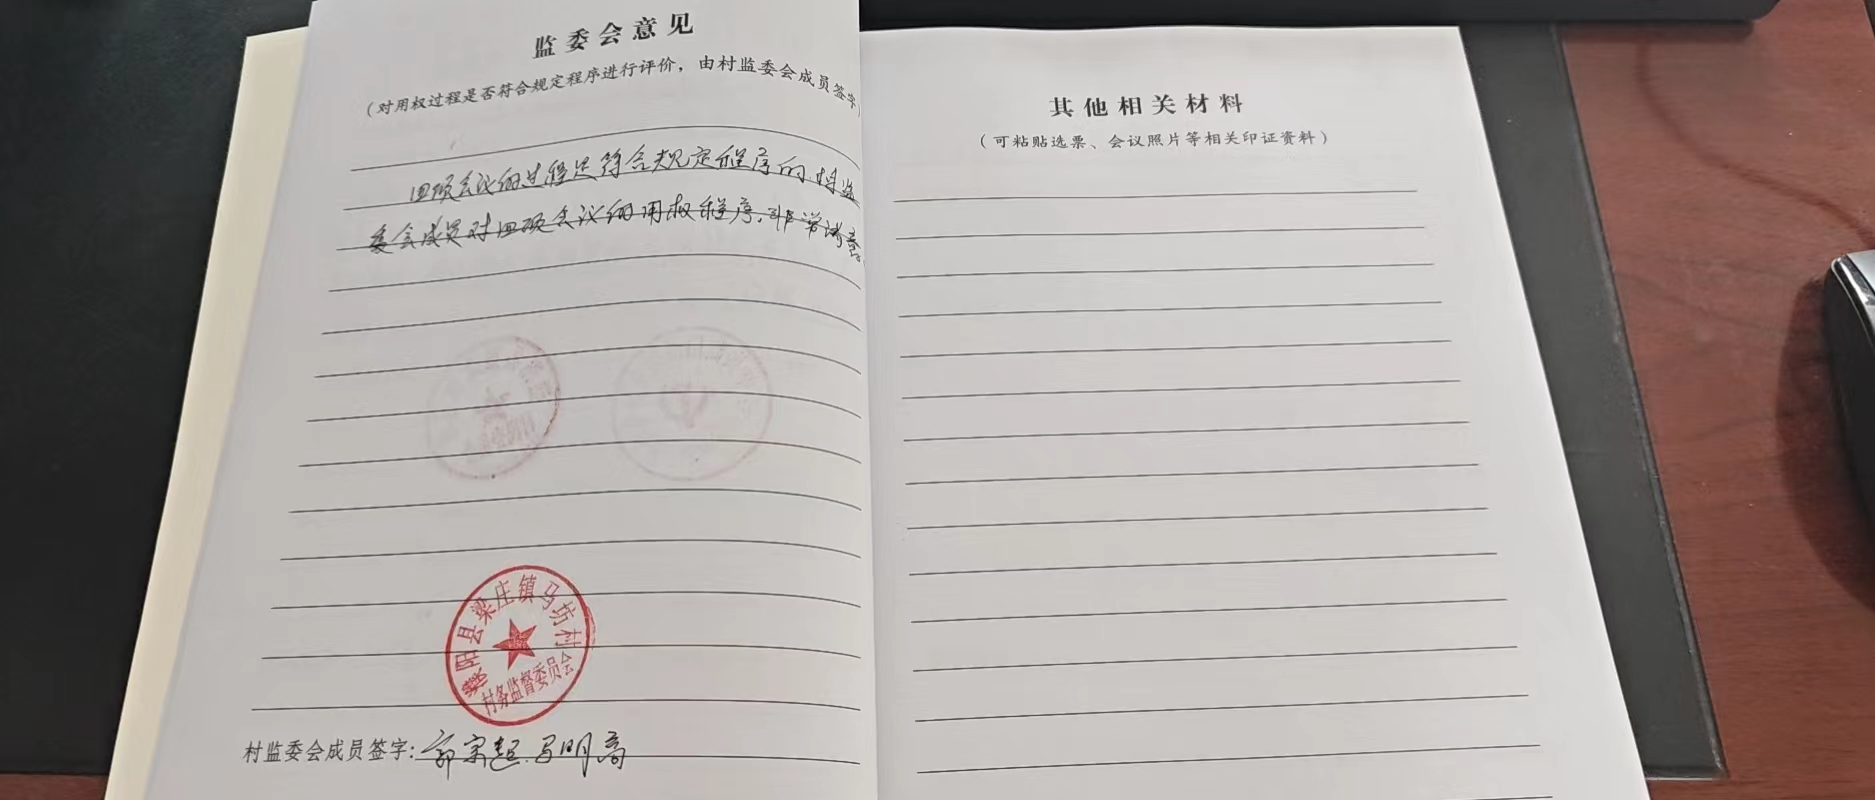 监委会意见
（对用权过程是否符合规定程序进行评价，由村监委会成员签字）
四项会议的过程是符合规定程序的 村监
委会成员对四项会议的用权程序，非常满意。
濮阳县梁庄镇马坊村
村务监督委员会
村监委会成员签字：郭宗超 马明高
其他相关材料
（可粘贴选票、会议照片等相关印证资料）